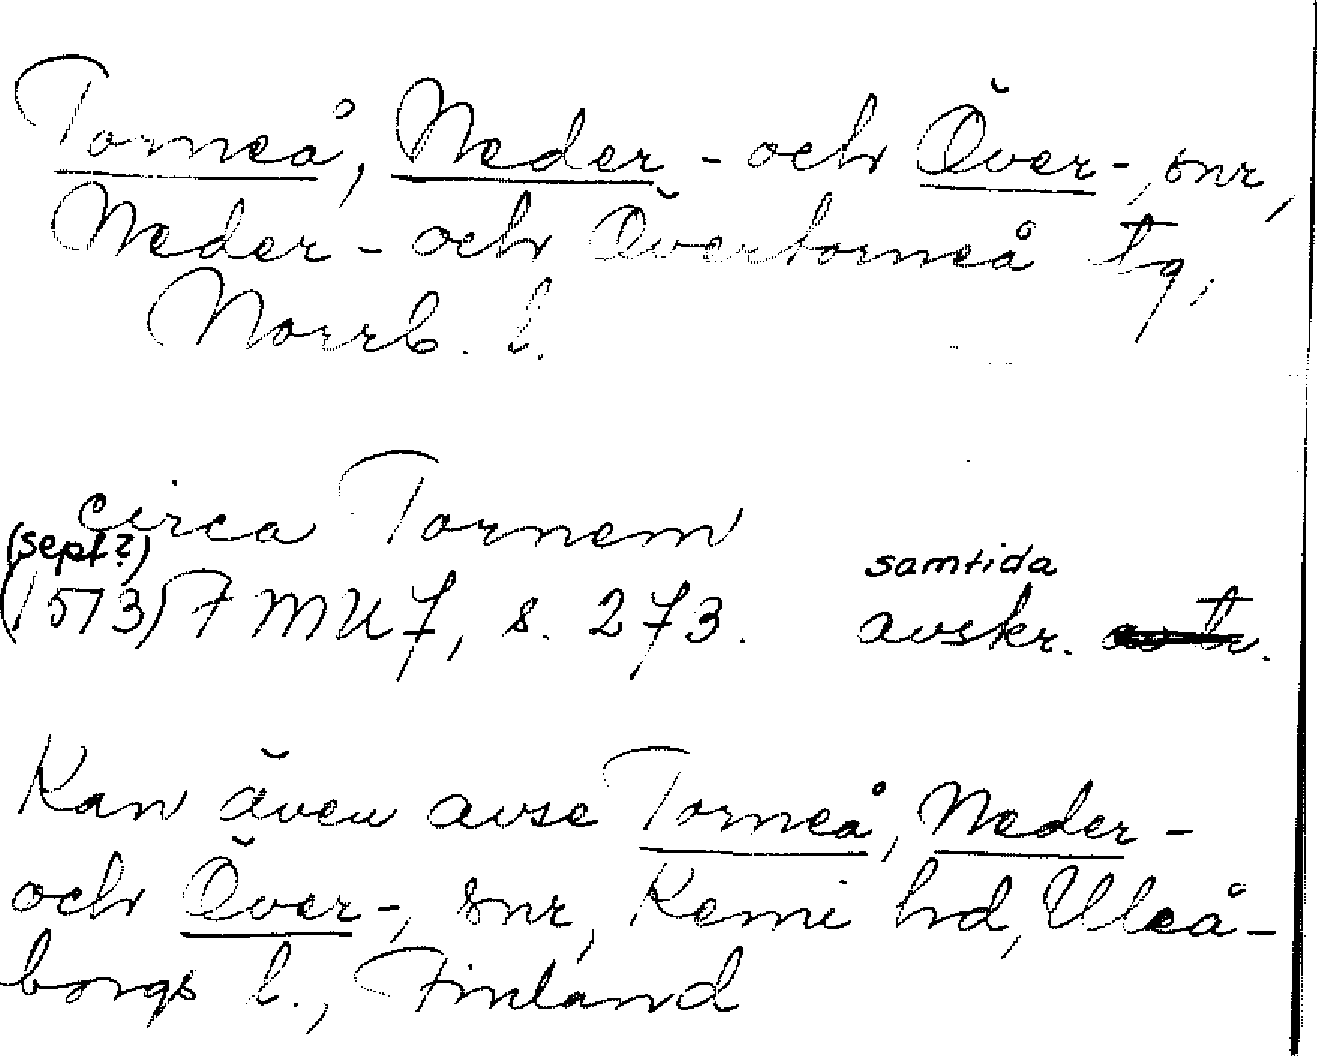 Torneå, Neder- och Över-, snr,
Neder- och Övertorneå tg,
Norrb. l.
circa Tornem
(sept?)
(1573) FMU 7, s. 273.
samtida
avskr.
Kan även avse Torneå, Neder-
och Över-, snr, Kemi hd, Uleå-
borgs l., Finland